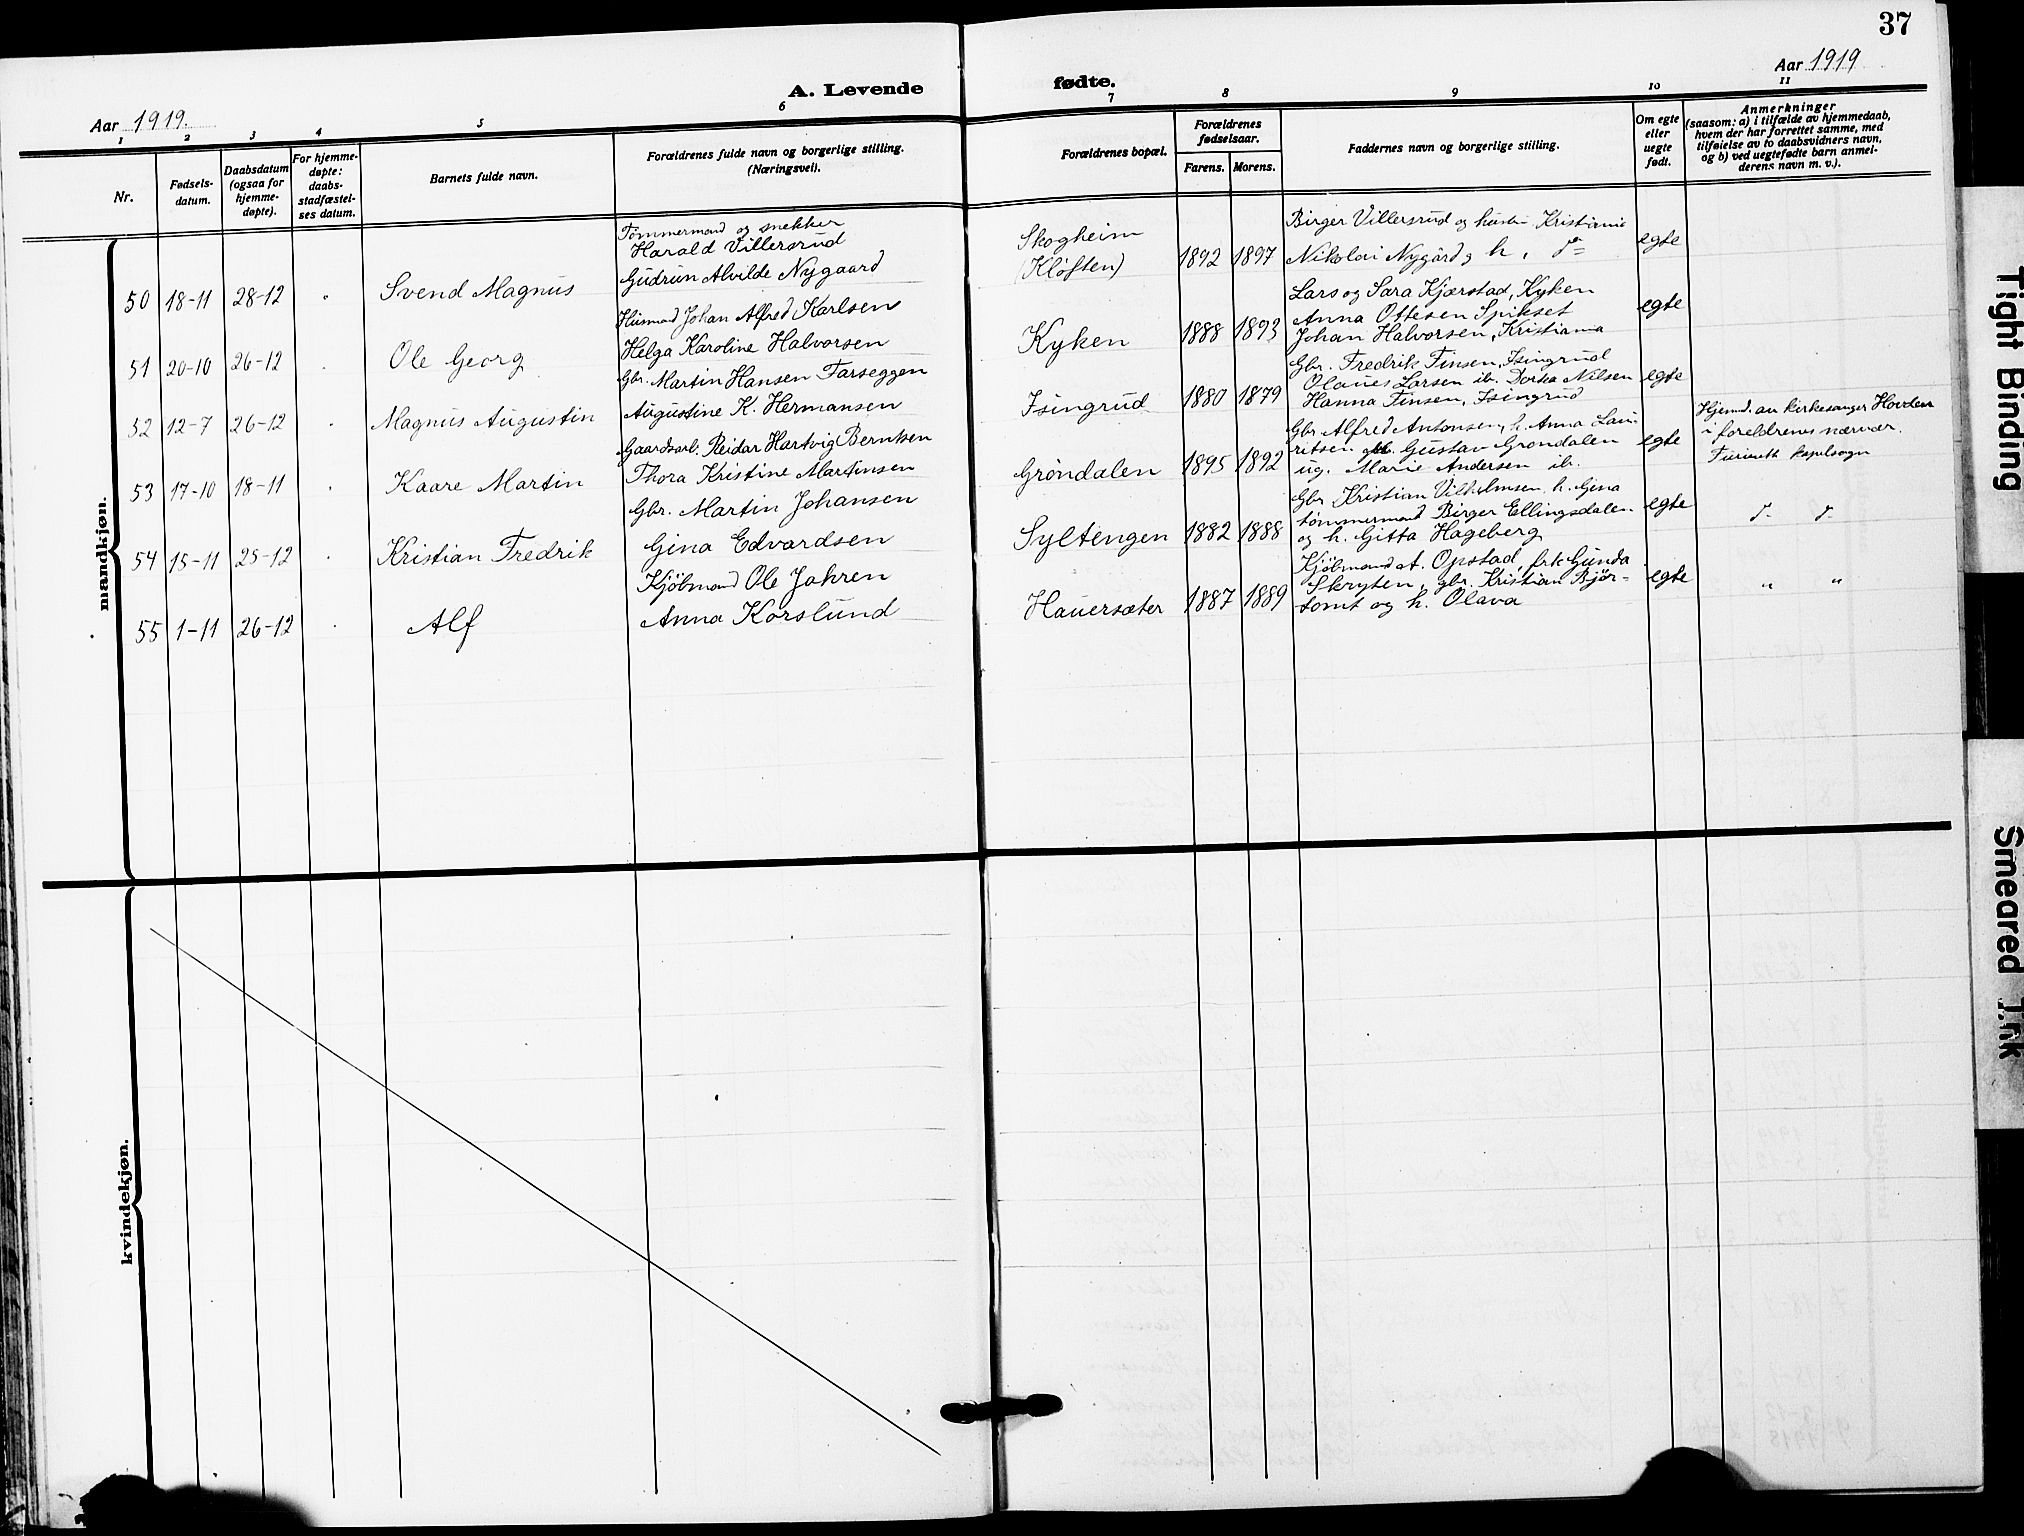 37
Aar 1919.
A. Levende fødte.
Aar 1919
1 2 3 4 5 6 7 8 9 10 11
Nr.
Fødsels-
datum.
Daabsdatum
(ogsaa for
hjemme-
døpte).
For hjemme-
døpte:
daabs-
stadfæstel-
ses datum.
Barnets fulde navn.
Forældrenes fulde navn og borgerlige stilling.
(Næringsvei).
Forældrenes bopæl.
Forældrenes
fødselsaar.
Farens. Morens.
Faddernes navn og borgerlige stilling.
Om egte
eller
uegte
født.
Anmerkninger
(saasom: a) i tilfælde av hjemmedaab,
hvem der har forrettet samme, med
tilføielse av to daabsvidners navn,
og b) ved uegtefødte barn anmel-
derens navn m. v.).
mandkjøn.
50 18-11 28-12 Svend Magnus
Tømmermand og snekker
Harald Villersrud
Gudrun Alvilde Nygaard
Skogheim
(Kløften)
1892 1897
Birger Villersrud og hustru Kristiania
Nikolai Nygård og h.
egte
51 20-10 26-12 Ole Georg
Husmand Johan Alfred Karlsen
Helga Karoline Halvorsen
Kyken
1888 1893
Lars og Sara Kjærstad, Kyken
Anna Ottesen Spikset
Johan Halvorsen, Kristiania
egte
52 12-7 26-12 Magnus Augustin
Gbr. Martin Hansen Farseggen
Augustine K. Hermansen
Isingrud
1880 1879
Gbr. Fredrik Finsen, Isingrud
Olaves Larsen ib. Dorthea Nilsen
Hanna Finsen, Isingrud
egte
53 17-10 18-11 Kaare Martin
Gaardsarb. Reidar Hartvig Berntsen
Thora Kristine Martinsen
Gröndalen
1895 1892
Gbr Alfred Antonsen, h. Anna Lau-
ritsen Gustav Grondalen
ug. Marie Andersen ib.
egte
Hjemd. av kirkesanger Hovden
i foreldrenes nærvær.
kapelsogn
54 15-11 25-12 Kristian Fredrik
Gbr. Martin Johansen
Gina Edvardsen
Syltengen
1882 1888
Gbr Kristian Vilhelmsen, h. Gina
tömmermand Birger Ellingsdalen
og h. Gitta Hageberg
egte
55 1-11 26-12 Alf
Kjöbmand Ole Jahren
Anna Korslund
Hauersæter
1887 1889
Kjöbmand A. Opstad, frk Gunda
Skryten, gbr. Kristian Björ-
tomt og h. Olava
egte
" "
kvindekjøn.
Tight Binding
Smeared Ink